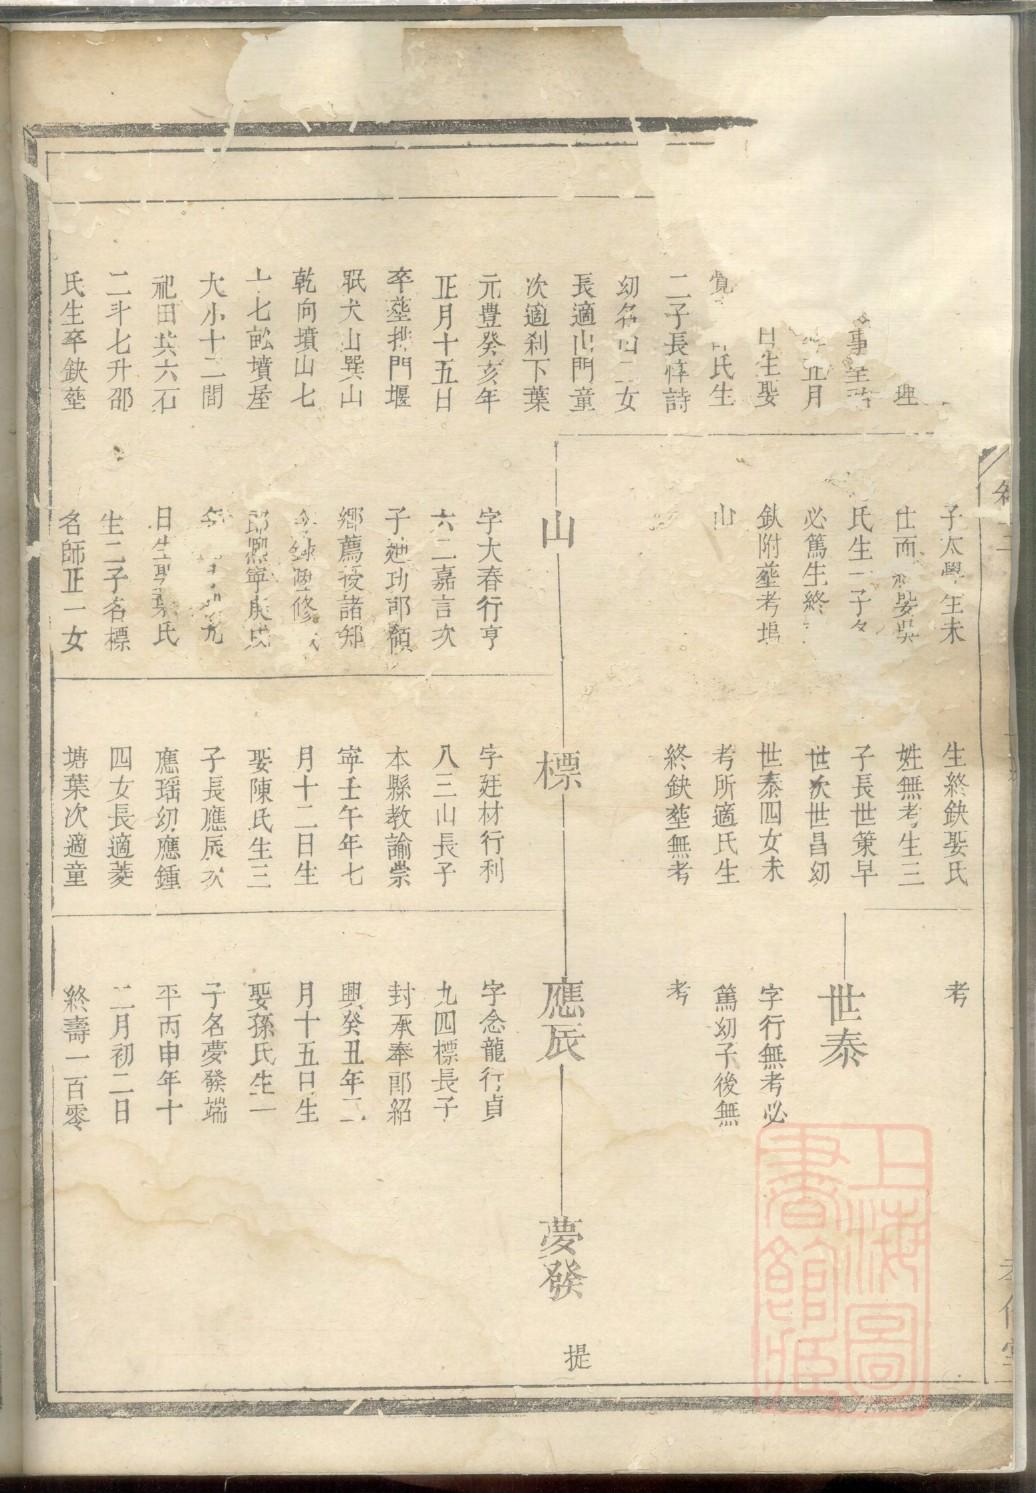 理
事
五月
日生娶
氏生
二子長惇詩
幼名山二女
長適山門童
次適剎下葉
元豊癸亥年
正月十五日
卒塟拱門堰
眠犬山巽山
乾向墳山七
十七畝墳屋
大小十二間
祀田共六石
二斗七升邵
氏生卒缺塟
子太學生未
仕而 娶吳
氏生一子
必篤生終
缺附塟考塢
山
山
字大春行亨
六二嘉言次
子廸功郎領
鄉薦授諸郑
修
郎熈寧庚戌
年 九
日生娶葉氏
生二子名標
名師正一女
生終缺娶氏
姓無考生三
子長世策早
世次世昌幼
世泰四女未
考所適氏生
終缺塟無考
標
字廷材行利
八三山長子
本縣教諭崇
寧壬午年七
月十二日生
娶陳氏生三
子長應辰次
應瑶幼應鍾
四女長適菱
塘葉次適童
考
世泰
字行無考必
篤幼子後無
考
應辰
字念龍行貞
九四標長子
封承奉郎紹
興癸丑年二
月十五日生
娶孫氏生一
子名夢發端
平丙申年十
二月初二日
終壽一百零
夢發
提
上海圖書館藏